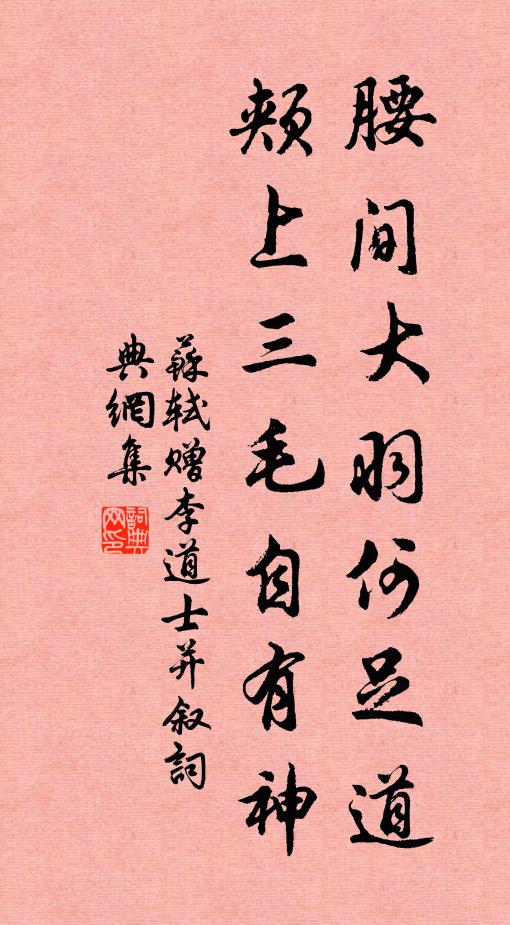 腰间大羽何足道
颊上三毛自有神
蘇軾赠李道士并叙詞
典網集
詞典
网印